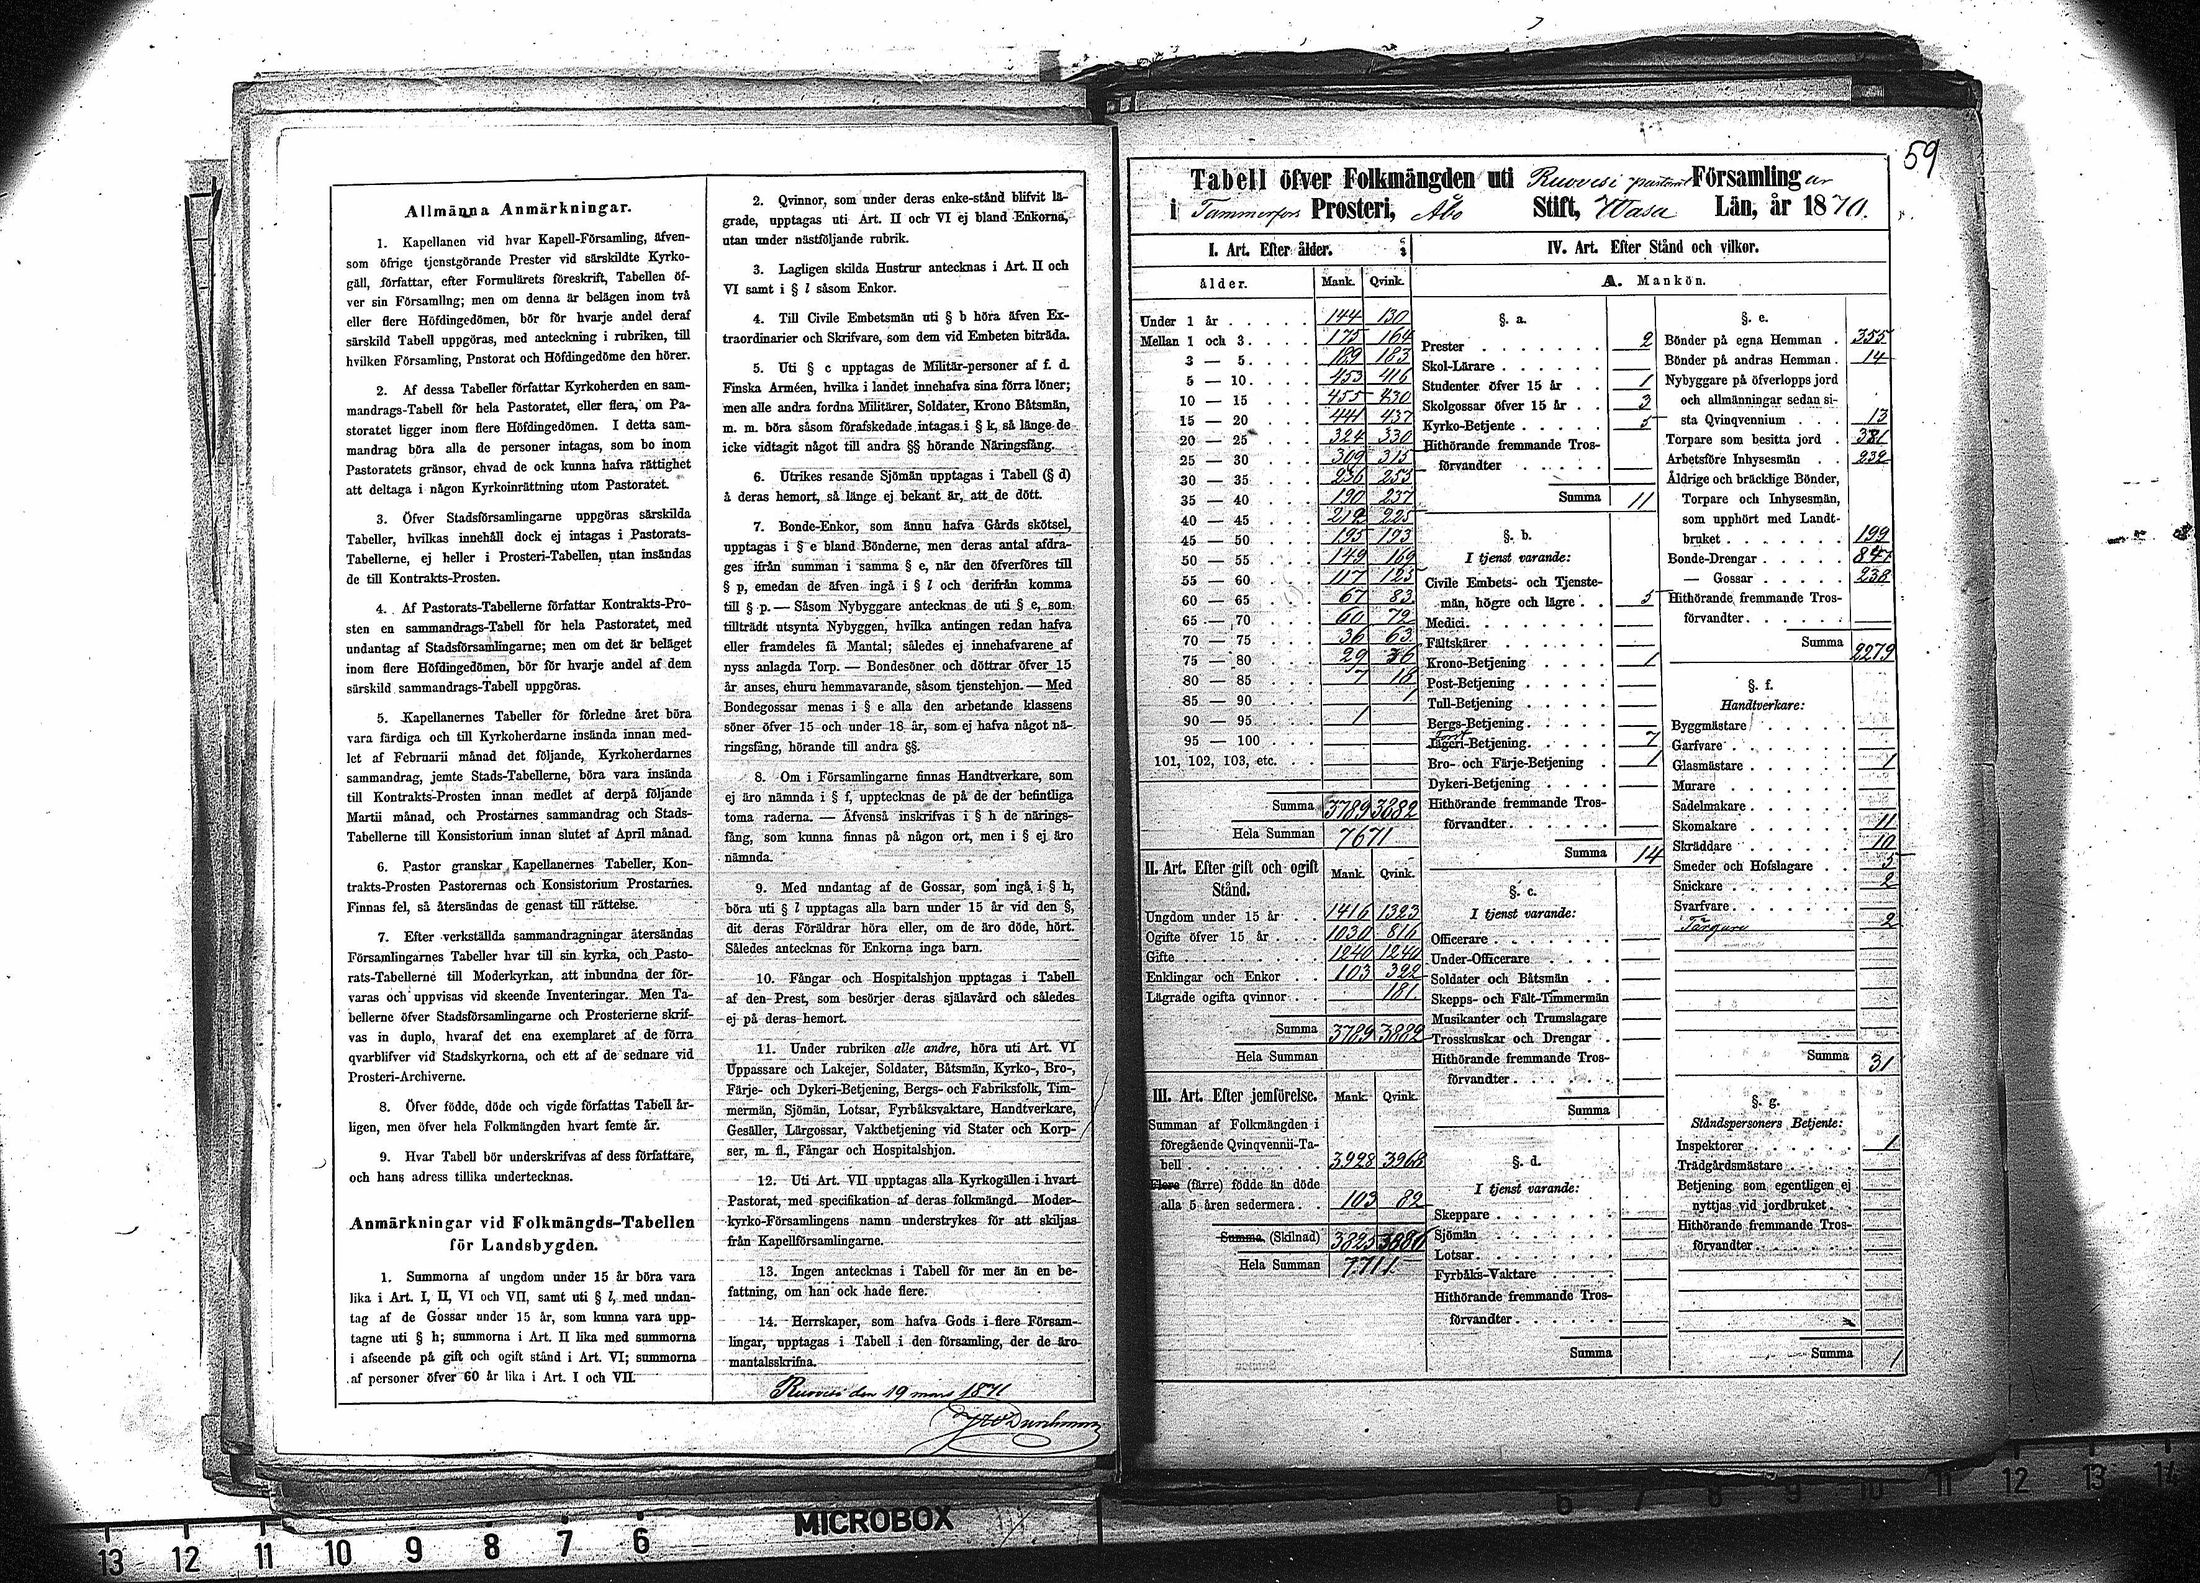 Allmänna Anmärkningar.
1. Kapellanen vid hvar Kapell-Församling, äfven-
som öfrige tjenstgörande Prester vid särskildte Kyrko-
gäll, författar, efter Formulärets föreskrift, Tabellen öf-
ver sin Församling; men om denna är belägen inom två
eller flere Höfdingedömen, bör för hvarje andel deraf
särskild Tabell uppgöras, med anteckning i rubriken, till
hvilken Församling, Pastorat och Höfdingedöme den hörer.
2. Af dessa Tabeller författar Kyrkoherden en sam-
mandrags-Tabell för hela Pastoratet, eller flera, om Pa-
storatet ligger inom flere Höfdingedömen. I detta sam-
mandrag böra alla de personer intagas, som bo inom
Pastoratets gränsor, ehvad de ock kunna hafva rättighet
att deltaga i någon Kyrkoinrättning utom Pastoratet.
3. Öfver Stadsförsamlingarne uppgöras särskilda
Tabeller, hvilkas innehåll dock ej intages i Pastorats-
Tabellerne, ej heller i Prosteri-Tabellen, utan insändas
de till Kontrakts-Prosten.
4. Af Pastorats-Tabellerne författar Kontrakts-Pro-
sten en sammandrags-Tabell för hela Pastoratet, med
undantag af Stadsförsamlingarne; men om det är beläget
inom flere Höfdingedömen, bör för hvarje andel af dem
särskild sammandrags-Tabell uppgöras.
5. Kapellanernes Tabeller för förledne året böra
vara färdiga och till Kyrkoherdarne insända innan med-
let af Februarii månad det följande, Kyrkoherdarnes
sammandrag, jemte Stads-Tabellerne, böra vara insända
till Kontrakts-Prosten innan medlet af derpå följande
Martii månad, och Prostarnes sammandrag och Stads-
Tabellerne till Konsistorium innan slutet af April månad.
6. Pastor granskar Kapellanernes Tabeller, Kon-
trakts-Prosten Pastorernas och Konsistorium Prostarnes.
Finnas fel, så återsändas de genast till rättelse.
7. Efter verkställda sammandragningar återsändas
Församlingarnes Tabeller hvar till sin kyrka, och Pasto-
rats-Tabellerne till Moderkyrkan, att inbundna der för-
varas och uppvisas vid skeende Inventeringar. Men Ta-
bellerne öfver Stadsförsamlingarne och Prosterierne skrif-
vas in duplo, hvaraf det ena exemplaret af de förra
qvarblifver vid Stadskyrkorna, och ett af de sednare vid
Prosteri-Archiverne.
8. Öfver födde, döde och vigde författas Tabell år-
ligen, men öfver hela Folkmängden hvart femte år.
9. Hvar Tabell bör underskrifvas af dess författare,
och hans adress tillika undertecknas.
Anmärkningar vid Folkmängds-Tabellen
för Landsbygden.
1. Summorna af ungdom under 15 år böra vara
lika i Art. I, II, VI och VII, samt uti § l, med undan-
tag af de Gossar under 15 år, som kunna vara upp-
tagne uti § h; summorna i Art. II lika med summorna
i afseende på gift och ogift stånd i Art. VI; summorna
af personer öfver 60 år lika i Art. I och VII.
2. Qvinnor, som under deras enke-stånd blifvit lä-
grade, upptagas uti Art. II och VI ej bland Enkorna,
utan under nästföljande rubrik.
3. Lagligen skilda Hustrur antecknas i Art. II och
VI samt i § l såsom Enkor.
4. Till Civile Embetsmän uti § b höra äfven Ex-
traordinarier och Skrifvare, som dem vid Embeten biträda.
5. Uti § c upptagas de Militär-personer af f. d.
Finska Arméen, hvilka i landet innehafva sina förra löner;
men alle andra fordna Militärer, Soldater, Krono Båtsmän,
m. m. böra såsom förafskedade intagas i § k, så länge de
icke vidtagit något till andra §§ hörande Näringsfång.
6. Utrikes resande Sjömän upptagas i Tabell (§ d)
å deras hemort, så länge ej bekant är, att de dött.
7. Bonde-Enkor, som ännu hafva Gårds skötsel,
upptagas i § e bland Bönderne, men deras antal afdra-
ges ifrån summan i samma § e, när den öfverföres till
§ p, emedan de äfven ingå i § l och derifrån komma
till § p. — Såsom Nybyggare antecknas de uti § e, som
tillträdt utsynta Nybyggen, hvilka antingen redan hafva
eller framdeles få Mantal; således ej innehafvarene af
nyss anlagda Torp. — Bondesöner och döttrar öfver 15
år anses, ehuru hemmavarande, såsom tjenstehjon. — Med
Bondegossar menas i § e alla den arbetande klassens
söner öfver 15 och under 18 år, som ej hafva något nä-
ringsfång, hörande till andra §§.
8. Om i Församlingarne finnas Handtverkare, som
ej äro nämnda i § f, upptecknas de på de der befintliga
toma raderna. — Äfvenså inskrifvas i § h de närings-
fång, som kunna finnas på någon ort, men i § ej äro
nämnda.
9. Med undantag af de Gossar, som ingå i § h,
böra uti § l upptagas alla barn under 15 år vid den §,
dit deras Föräldrar höra eller, om de äro döde, hört.
Således antecknas för Enkorna inga barn.
10. Fångar och Hospitalshjon upptagas i Tabell
af den Prest, som besörjer deras själavård och således
ej på deras hemort.
11. Under rubriken alle andre, höra uti Art. VI
Uppassare och Lakejer, Soldater, Båtsmän, Kyrko-, Bro-,
Färje- och Dykeri-Betjening, Bergs- och Fabriksfolk, Tim-
mermän, Sjömän, Lotsar, Fyrbåksvaktare, Handtverkare,
Gesäller, Lärgossar, Vaktbetjening vid Stater och Korp-
ser, m. fl., Fångar och Hospitalshjon.
12. Uti Art. VII upptagas alla Kyrkogällen i hvart
Pastorat, med specifikation af deras folkmängd. Moder-
kyrko-Församlingens namn understrykes för att skiljas
från Kapellförsamlingarne.
13. Ingen antecknas i Tabell för mer än en be-
fattning, om han ock hade flere.
14. Herrskaper, som hafva Gods i flere Försam-
lingar, upptagas i Tabell i den församling, der de äro
mantalsskrifna.
Ruovesi den 19 mars 1871
59
Tabell öfver Folkmängden uti Ruovesi pastorat Församlingar
i Tammerfors Prosteri, Åbo Stift, Wasa Län, år 1870.
I. Art. Efter ålder.
ålder. Mank. Qvink.
Under 1 år 144 130
Mellan 1 och 3 175 164
3 — 5 189 183
5 — 10 453 416
10 — 15 455 430
15 — 20 441 437
20 — 25 324 330
25 — 30 309 315
30 — 35 236 253
35 — 40 190 237
40 — 45 212 225
45 — 50 195 193
50 — 55 149 169
55 — 60 117 125
60 — 65 67 83
65 — 70 60 72
70 — 75 36 63
75 — 80 29 36
80 — 85 7 18
85 — 90 1
90 — 95 1
95 — 100
101, 102, 103, etc.
Summa 3789 3882
Hela Summan 7671
II. Art. Efter gift och ogift Stånd. Mank. Qvink.
Ungdom under 15 år 1416 1323
Ogifte öfver 15 år 1030 816
Gifte 1240 1240
Enklingar och Enkor 103 322
Lägrade ogifta qvinnor 181
Summa 3789 3882
Hela Summan
III. Art. Efter jemförelse. Mank. Qvink.
Summan af Folkmängden i
föregående Qvinqvennii-Ta-
bell 3928 3968
Flere (färre) födde än döde
alla 5 åren sedermera 103 82
Summa (Skilnad) 3825 3886
Hela Summan 7711
IV. Art. Efter Stånd och vilkor.
A. Mankön.
§. a.
Prester 2
Skol-Lärare
Studenter öfver 15 år 1
Skolgossar öfver 15 år 3
Kyrko-Betjente 5
Hithörande fremmande Tros-
förvandter
Summa 11
§. b.
I tjenst varande:
Civile Embets- och Tjenste-
män, högre och lägre 5
Medici
Fältskärer
Krono-Betjening 1
Post-Betjening
Tull-Betjening
Bergs-Betjening
Forst
Jägeri-Betjening 7
Bro- och Färje-Betjening 1
Dykeri-Betjening
Hithörande fremmande Tros-
förvandter
Summa 14
§. c.
I tjenst varande:
Officerare
Under-Officerare
Soldater och Båtsmän
Skepps- och Fält-Timmermän
Musikanter och Trumslagare
Trosskuskar och Drengar
Hithörande fremmande Tros-
förvandter
Summa
§. d.
I tjenst varande:
Skeppare
Sjömän
Lotsar
Fyrbåks-Vaktare
Hithörande fremmande Tros-
förvandter
Summa
§. e.
Bönder på egna Hemman 355
Bönder på andras Hemman 14
Nybyggare på öfverlopps jord
och allmänningar sedan si-
sta Qvinqvennium 13
Torpare som besitta jord 381
Arbetsföre Inhysesmän 232
Åldrige och bräcklige Bönder,
Torpare och Inhysesmän,
som upphört med Landt-
bruket 199
Bonde-Drengar 847
— Gossar 238
Hithörande fremmande Tros-
förvandter
Summa 2279
§. f.
Handtverkare:
Byggmästare
Garfvare
Glasmästare 1
Murare
Sadelmakare
Skomakare 11
Skräddare 10
Smeder och Hofslagare 5
Snickare 2
Svarfvare
Färgare 2
Summa 31
§. g.
Ståndspersoners Betjente:
Inspektorer 1
Trädgårdsmästare
Betjening som egentligen ej
nyttjas vid jordbruket
Hithörande fremmande Tros-
förvandter
Summa 1
MICROBOX
13 12 11 10 9 8 7 6
6 7 8 9 10 11 12 13 14